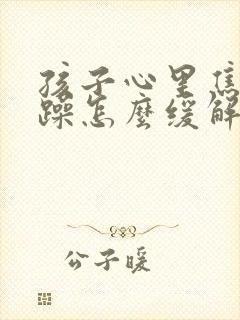 孩子心里焦
躁怎麼缓解
公子暖